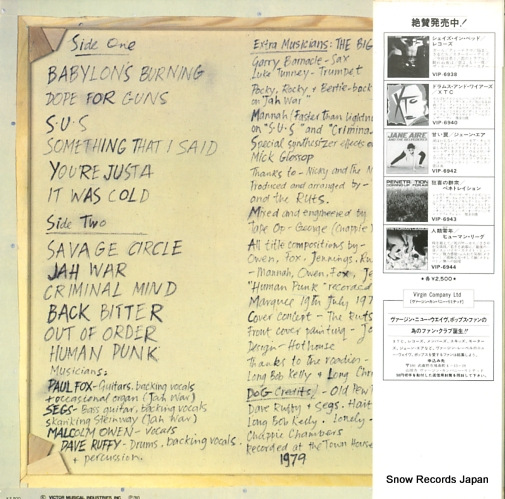 Side One
BABYLON'S BURNING
DOPE FOR GUNS
S·U·S
SOMETHING THAT I SAID
YOU'RE JUST A
IT WAS COLD
Side Two
SAVAGE CIRCLE
JAH WAR
CRIMINAL MIND
BACK BITTER
OUT OF ORDER
HUMAN PUNK
Musicians:
PAUL FOX - Guitars, backing vocals
+ occasional organ (Jah War)
SEGS - Bass guitar, backing vocals
skanking Steinway (Jah War)
MALCOLM OWEN - vocals
DAVE RUFFY - Drums, backing vocals.
+ percussion.
Extra Musicians: THE BIG
Gary Barnacle - Sax
Luke Tunney - Trumpet
Pocky, Rocky + Bertie - back
on "Jah War"
Mannah (Faster than lightn
on "S·U·S" and "Crimina
Special synthesizer effects o
Mick Glossop
Thanks to - Nicky and the M
Produced and arranged by -
and the Ruts.
Mixed and engineered by
Tape Op - George (Chappie)
All title compositions by -
Owen, Fox, Jennings, Ru
- Mannah, Owen, Fox, Je
"Human Punk" recorded
Marquee 19th July, 197
Cover concept - The Ruts
Front cover painting - Jo
Design - Hothouse
Thanks to the roadies -
Long Bob Kelly + Long Chri
DoG Credits) - Old Pew
Dave Ruffy + Segs, Hait
Long Bob Kelly - Lonely -
Chappie Chambers
Recorded at the Town House
1979
VICTOR MUSICAL INDUSTRIES, INC.
絶賛発売中!
シェイズ・イン・ベッド/
レコーズ
VIP-6938
ドラムス・アンド・ワイアーズ
/XTC
VIP-6940
JANE AIRE
甘い罠/ジェーン・エア
VIP-6942
PENETRATION
狂喜の群衆/
ペネトレイション
VIP-6943
人間零年/
ヒューマン・リーグ
VIP-6944
★各¥2,500★
Virgin Company Ltd
ヴァージン・ニュー・ウエイヴ、ポップス・ファンの
為のファン・クラブ誕生!!
申込み先
Snow Records Japan